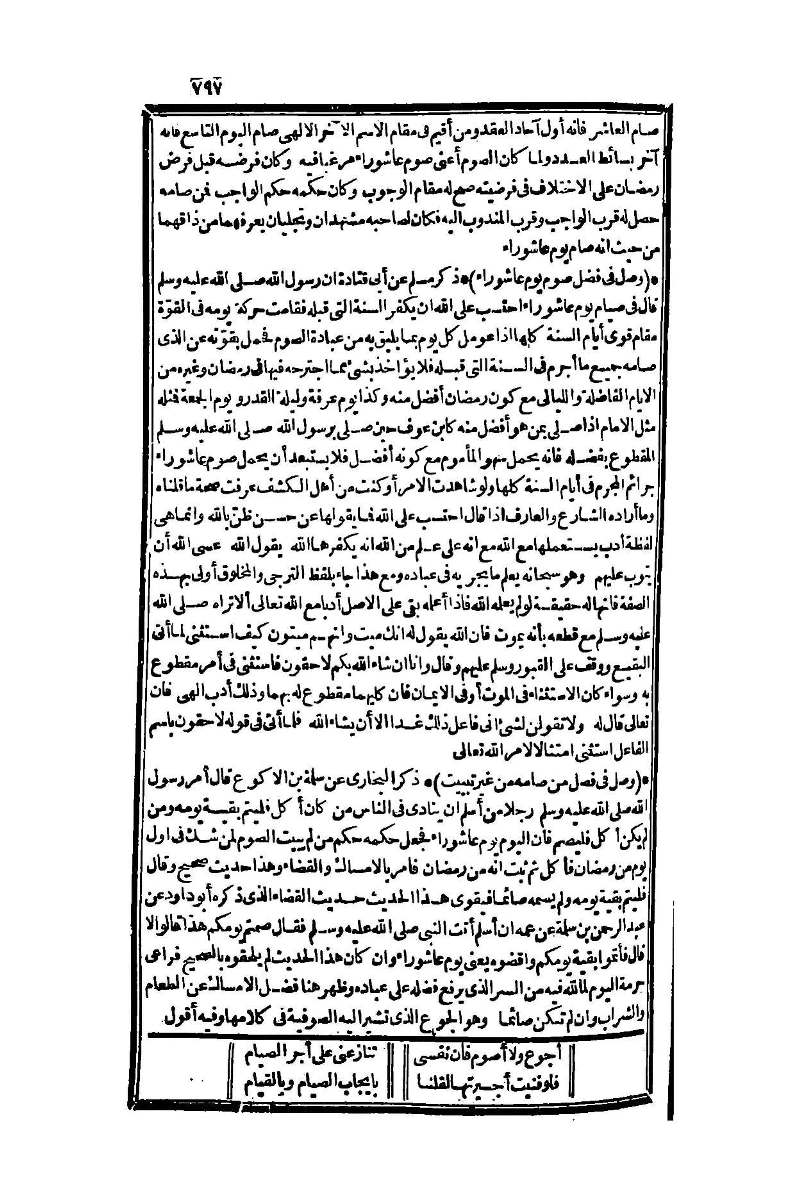 ٧٩٧
صام العاشر فانه أول آحاد العقد ومن أقيم فى مقام الاسم الآخر الالهى صام اليوم التاسع فانه
آخر بسائط العدد ولما كان الصوم أعنى صوم عاشوراء مرغبا فيه وكان فرضه قبل فرض
رمضان على الاختلاف فى فرضيته صح له مقام الوجوب وكان حكمه حكم الواجب فمن صامه
حصل له قرب الواجب وقرب المندوب اليه فكان لصاحبه مشهدان وتجليان يعرفهما من ذاقهما
من حيث انه صام يوم عاشوراء
*(وصل فى فضل صوم يوم عاشوراء)* ذكر مسلم عن أبى قتادة ان رسول الله صلى الله عليه وسلم
قال فى صيام يوم عاشوراء احتسب على الله ان يكفر السنة التى قبله فقامت حركة يومه فى القوة
مقام قوى أيام السنة كلها اذا عومل كل يوم بما يليق به من عبادة الصوم فحمل بقوته عن الذى
صامه جميع ما أجرم فى السنة التى قبله فلا يؤاخذ بشئ مما اجترحه فيها فى رمضان وغيره من
الايام الفاضلة والليالى مع كون رمضان أفضل منه وكذا يوم عرفة وليلة القدر ويوم الجمعة فمثله
مثل الامام اذا صلى بمن هو أفضل منه كابن عوف حين صلى برسول الله صلى الله عليه وسلم
المقطوع بفضله فانه يحمل سهو المأموم مع كونه أفضل فلا يستبعد أن يحمل صوم عاشوراء
جرائم المجرم فى أيام السنة كلها ولو شاهدت الامر أو كنت من أهل الكشف عرفت صحة ما قلناه
وما أراده الشارع والعارف اذا قال احتسب على الله فما يقولها عن حسن ظن بالله وانما هى
لفظة أدب يستعملها مع الله مع انه على علم من الله انه يكفرها الله يقول الله عسى الله أن
يتوب عليهم وهو سبحانه يعلم ما يجريه فى عباده ومع هذا جاء بلفظ الترجى والمخلوق أولى بهذه
الصفة فانها له حقيقة لو لم يعلمه الله فاذا أعلمه بقى على الاصل أدبا مع الله تعالى ألا تراه صلى الله
عليه وسلم مع قطعه بأنه يموت فان الله يقول له انك ميت وانهم ميتون كيف استثنى لما أتى
البقيع ووقف على القبور وسلم عليهم وقال وانا ان شاء الله بكم لاحقون فاستثنى فى أمر مقطوع
به وسواء كان الاستثناء فى الموت أو فى الايمان فان كليهما مقطوع له بهما وذلك أدب الهى فان
تعالى قال له ولا تقولن لشئ انى فاعل ذلك غدا الا أن يشاء الله فلما أتى فى قوله لاحقون باسم
الفاعل استثنى امتثالا لامر الله تعالى
*(وصل فى فصل من صامه من غير تبييت)* ذكر البخارى عن سلمة بن الاكوع قال أمر رسول
الله صلى الله عليه وسلم رجلا من أسلم ان ينادى فى الناس من كان أكل فليتم بقية يومه ومن
لم يكن أكل فليصم فان اليوم يوم عاشوراء فجعل حكمه حكم من لم يبيت الصوم لمن شك فى اول
يوم من رمضان فأكل ثم ثبت انه من رمضان فامر بالامساك والقضاء وهذا حديث صحيح وقال
فليتم بقية يومه ولم يسمه صائما فيقوى هذا الحديث حديث القضاء الذى ذكره أبو داود عن
عبد الرحمن بن سلمة عن عمه ان أسلم أتت النبى صلى الله عليه وسلم فقال صمتم يومكم هذا قالوا لا
قال فأتموا بقية يومكم واقضوه يعنى يوم عاشوراء وان كان هذا الحديث لم يلحقوه بالصحيح فراعى
حرمة اليوم لما لله فيه من السر الذى يرفع فضله على عباده وظهر هنا فضل الامساك عن الطعام
والشراب وان لم تكن صائما وهو الجوع الذى تشير اليه الصوفية فى كلامها وفيه أقول
أجوع ولا أصوم فان نفسى تنازعنى على أجر الصيام
فلو فنيت أجيرتها لقلنا بايجاب الصيام وبالقيام